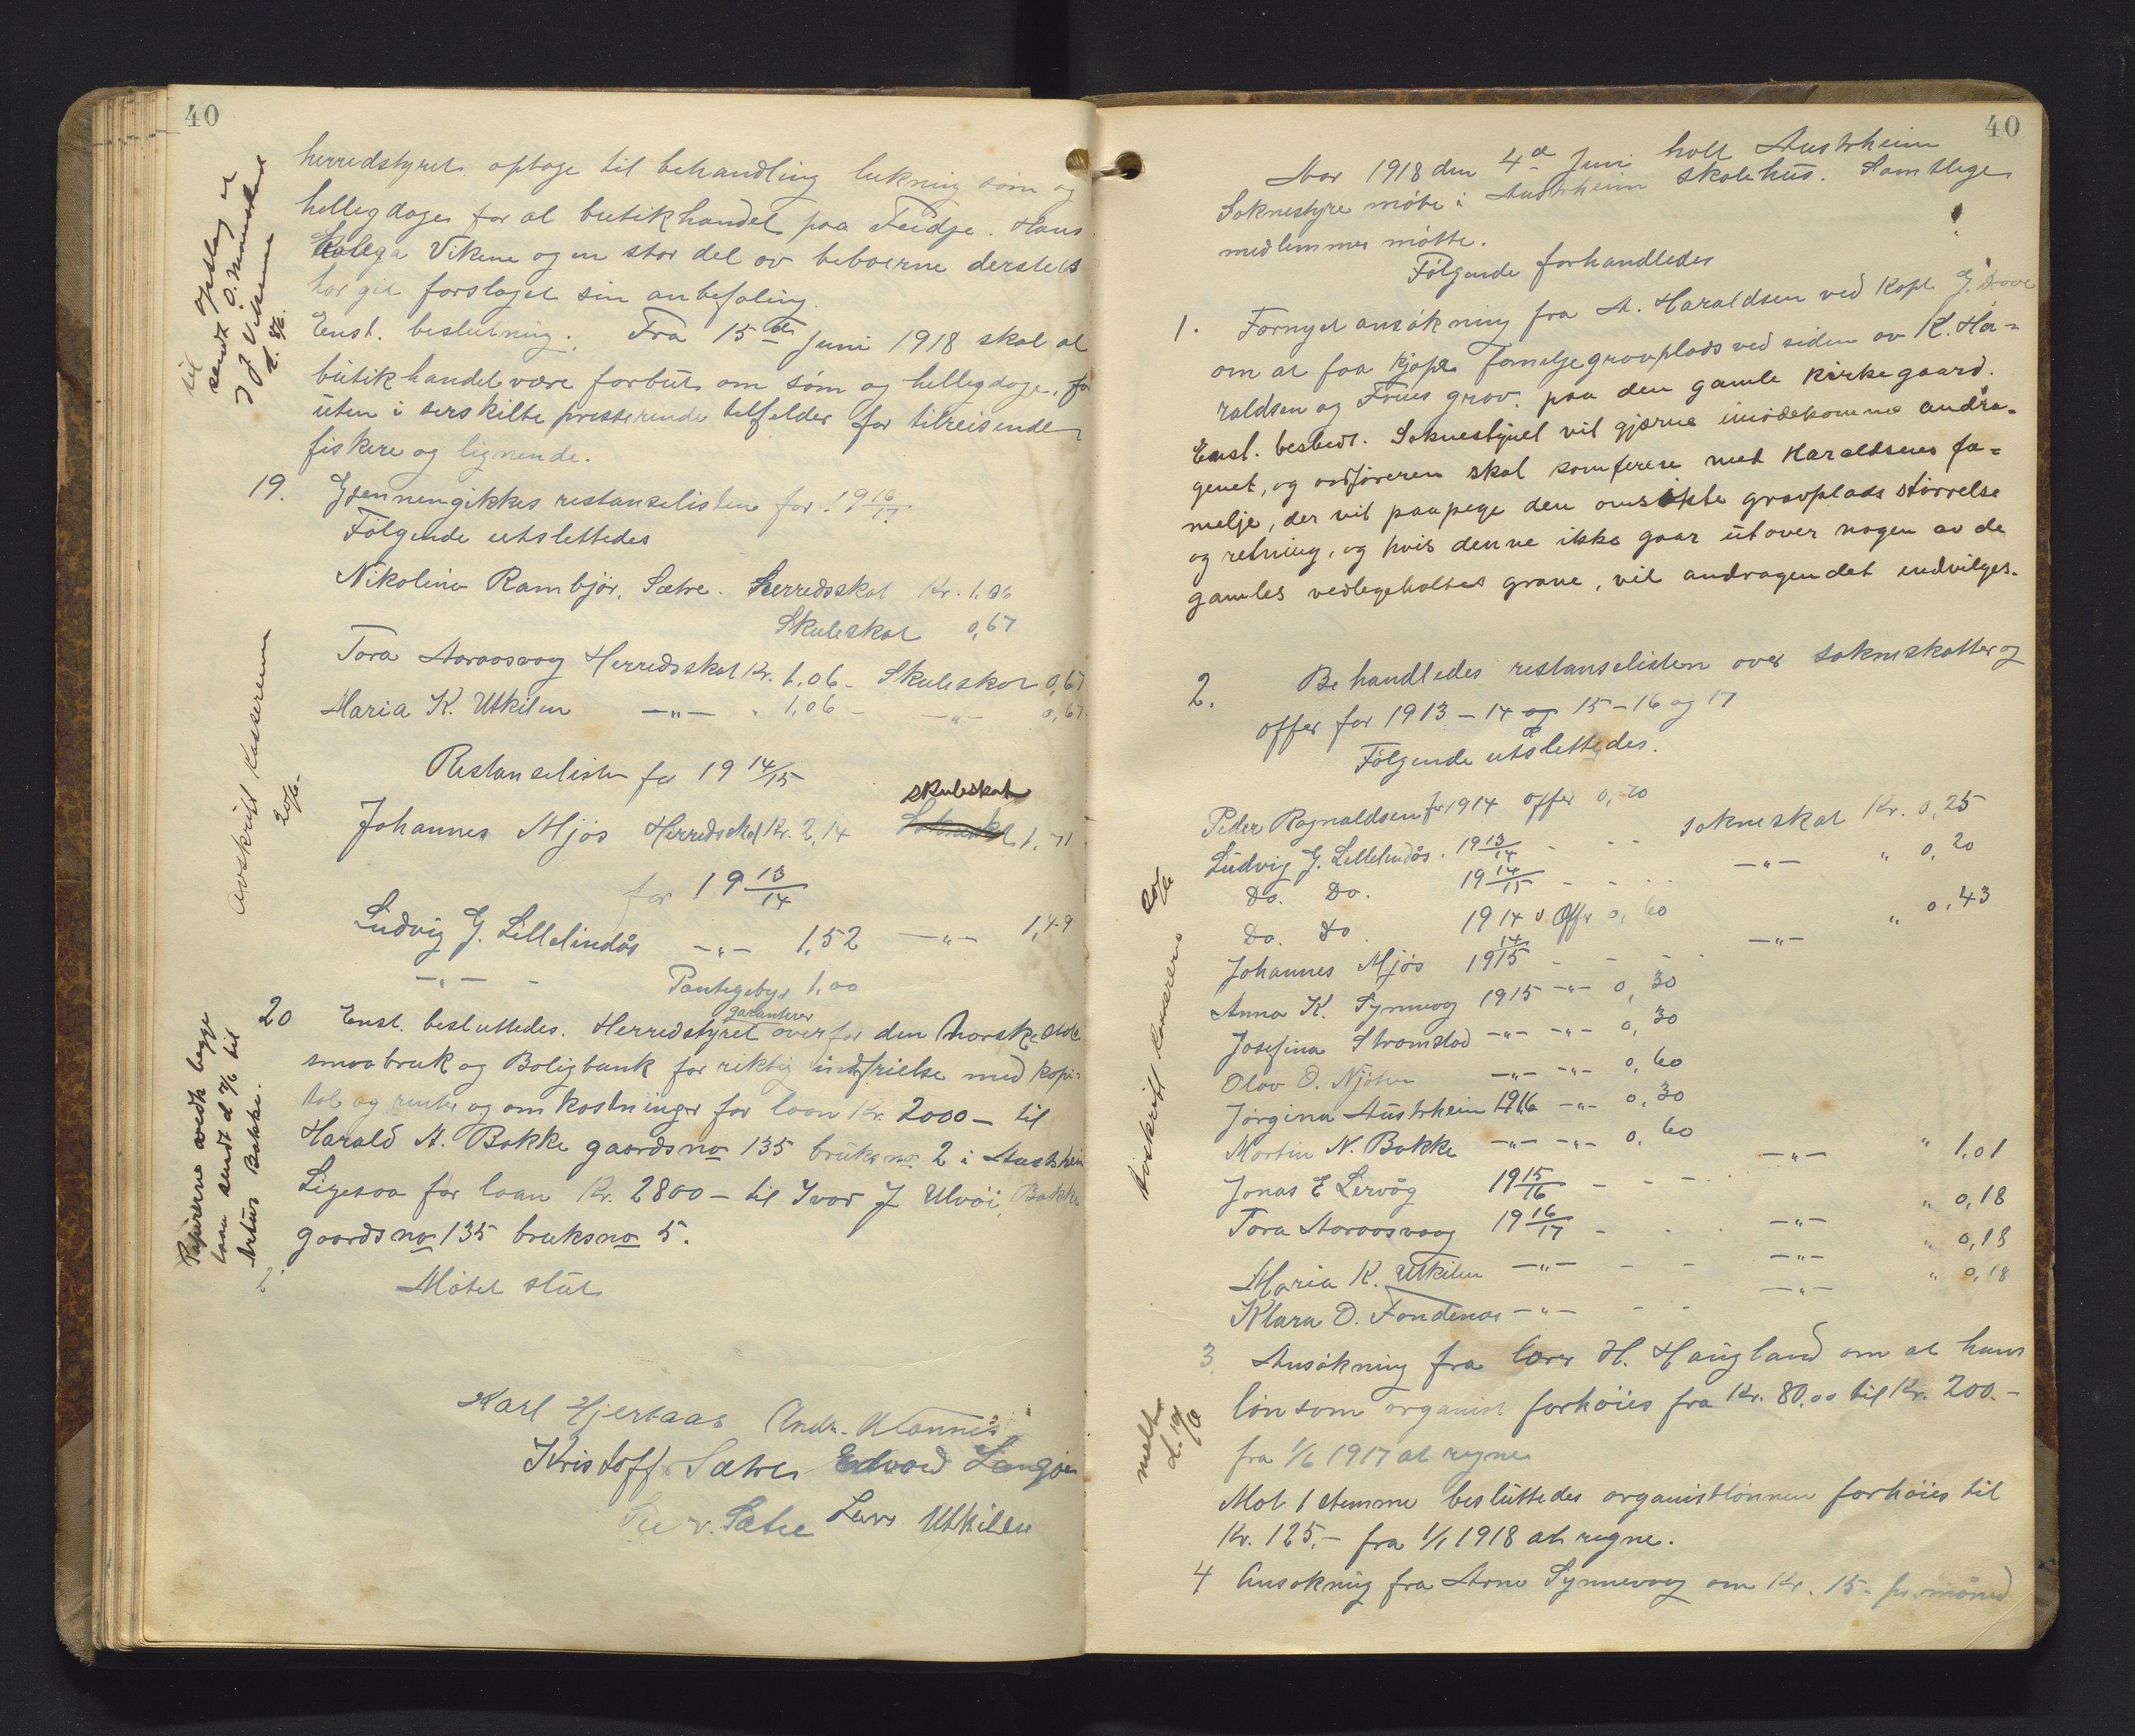 40
herredstyret optage til behandling lukning søm og
helligdager for al butikhandel paa Fedje. Hans
Kollega Vikene og en stor del av beboerne dersteds
har git forslaget sin anbefaling.
Enst. beslutning: Fra 15de Juni 1918 skal al
butikhandel være forbut om søm og helligdage, for
uten i serskilte presserende tilfelder for tilreisende
fiskere og lignende.
til
sendt opslag
J J Vikene
d. 8/6.
19. Gjennemgikkes restanselisten for 1916/17.
Følgende utslettedes
Nikolina Rambjør, Sætre. Herredsskat Kr. 1,06
Skuleskat 0,67
Tora Aaraasvaag Herredsskat Kr. 1,06 - Skuleskat 0,67
Maria K. Utkilen —"— 1,06 - —"— 0,67
Restanselisten for 1914/15
Johannes Mjøs Herredsskat Kr. 2,14 skuleskat 1,71
for 1913/14
Ludvig G. Lillelindås —"— 1,52 —"— 1,49
—"— - Pantegebyr 1,00
Avskrift kassereren
20/6.
20 Enst. besluttedes. Herredstyret garanterer overfor den norske stats
smaabruk og Boligbank for riktig indfrielse med kapi-
tal og renter og omkostninger for laan Kr. 2000 - til
Harald A. Bakke gaardsno 135 bruksno 2 i Austrheim
Ligesaa for laan Kr. 2800 - til Ivar J Ulvøi, Bakke
gaardsno 135 bruksno 5.
Papirerne vedk begge
laan sendt d 7/6 til
Artur Bakke.
Møtet slut
Karl Hjertaas Andr. Mannes
Kristoff Sætre Edvard Langøen
Siev. Sætre Lars Utkilen
40
Aar 1918 den 4de Juni holt Austrheim
Soknestyre møte i Austrheim skolehus. Samtlige
medlemmer møtte.
Følgende forhandledes
1. Fornyet ansøkning fra A. Haraldsen ved Kapt. G. Grove
om at faa kjøpe familjegravplads ved siden av K. Ha-
raldsen og Frues grav, paa den gamle kirkegaard.
Enst. beslut. Soknestyret vil gjerne imødekomme andra-
genet, og ordføreren skal komferere med Haraldsens fa-
melje, der vil paapege den omsøkte gravplads størrelse
og retning, og hvis denne ikke gaar utover nogen av de
gamles vedlegeholtes grave, vil andragendet indvilges.
2. Behandledes restanselisten over soknskatter og
offer for 1913 - 14 og 15 - 16 og 17
Følgende utslettedes.
Peder Ragnaldsen for 1914 offer 0,20
Ludvig G. Lillelindås. 1913/14 - - - soknskat Kr. 0,25
Do. Do. 1914/15 - - - —"— " 0,20
Do. Do. 1914 Offer 0,60
Johannes Mjøs 1914/15 - - - —"— " 0,43
Anna K. Synnevaag 1915 —"— 0,30
Josefina Strømstad —"— —"— 0,30
Olav O. Njøten —"— —"— 0,60
Jørgina Austrheim 1916 —"— 0,30
Martin N. Bakke —"— —"— 0,60
Jonas E Lervåg 1915/16 - - - —"— " 1,01
Tora Aaraasvaag 1916/17 - - —"— " 0,18
Maria K. Utkilen —"— - - —"— " 0,18
Klara O. Fondenæs —"— - - —"— " 0,18
Avskrift kassereren 20/6
3 Ansøkning fra Lærer H. Haugland om at hans
løn som organist forhøies fra Kr. 80,00 til Kr. 200.-
fra 1/6 1917 at regne
Mot 1 stemme besluttedes organistlønnen forhøies til
Kr. 125,- fra 1/1 1918 at regne.
meldt
d. 19/6
4 Ansøkning fra Arne Synnevaag om Kr. 15.- pr. måned